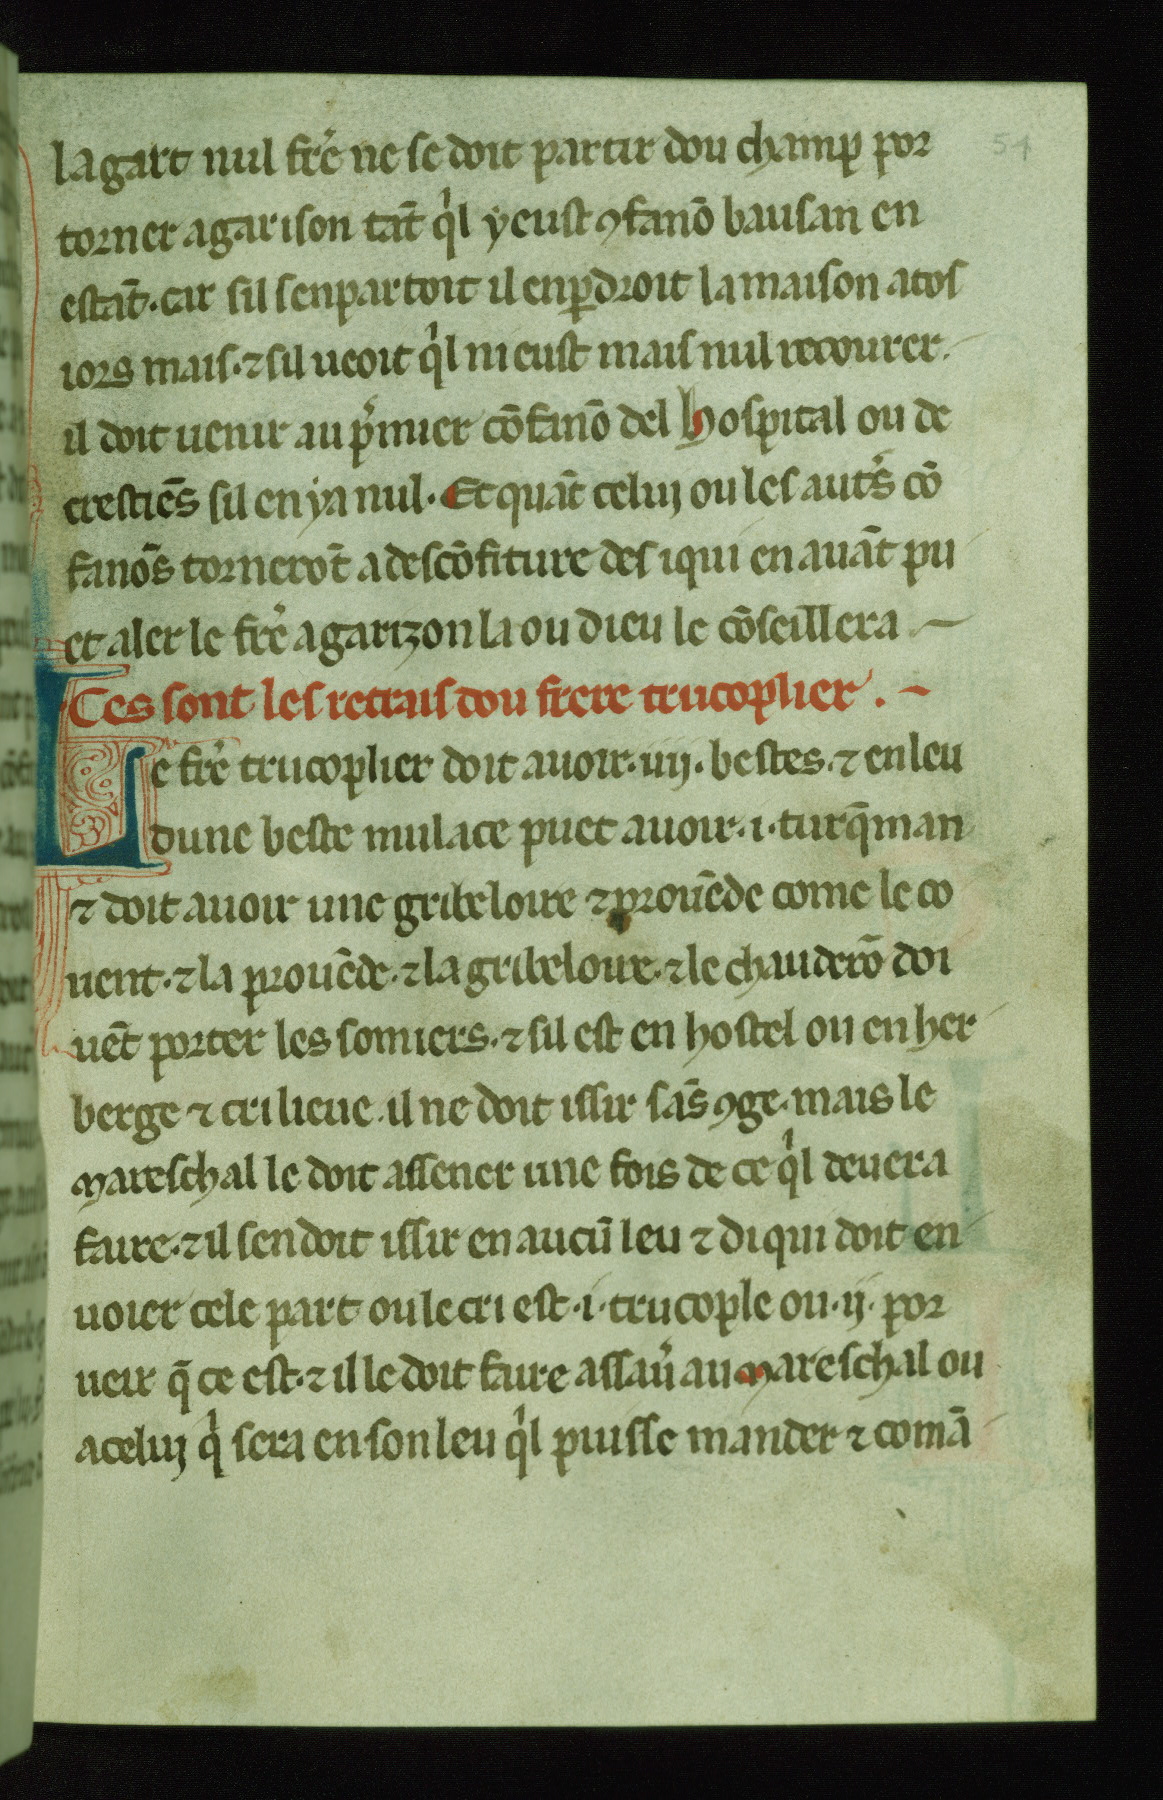 54
lagart nul fre̾ ne se doit partir dou champ por
torner agarison tat̄ qͥl yeust ꝯfanō bausan en
estāt. car sil senpartoit il enꝑdroit lamaison atos
iors mais. ⁊ sil ueoit qͥl nieust mais nul recourer.
il doit uenir au pͥmier cōfanō del hospital ou de
crestiēs sil en ya nul. Et quāt celuij ou les autͤs cō
fanōs tornerōt adescōfiture des iqui en auāt pu
et aler le fre̾ agarizon la ou dieu le cōseillera.
Ces sont les retrais dou frere trucoplier.
Le fre̾ trucoplier doit auoir .iiij. bestes. ⁊ enleu
dune beste mulace puet auoir .i. turq̄man
⁊ doit auoir une gribeloire ⁊ prouēde come le co
uent. ⁊ la prouēde. ⁊ la gribeloire. ⁊ le chauderō doi
uēt porter les somiers. ⁊ sil est en hostel ou en her
berge ⁊ cri lieue. il ne doit issir sās ꝯge. mais le
mareschal le doit assener une fois de ce qͥl deuera
faire. ⁊ il sendoit issir en aucū leu ⁊ diqui doit en
uoier cele part ou le cri est .i. trucople ou .ij. por
ueir q̄ ce est. ⁊ il le doit faire assau̾ au mareschal ou
aceluij qͥ sera en son leu qͥl puisse mander ⁊ comā